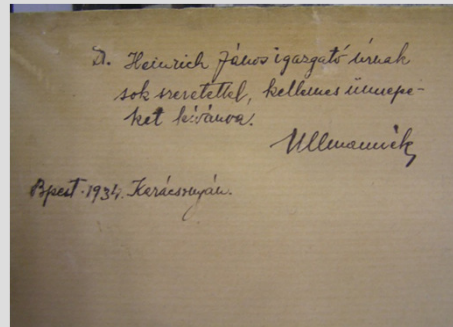 D. Heinrich János igazgató úrnak
sok szeretettel, kellemes ünnepé-
ket kívánva.
Ullmannék
Bpest. 1934. Karácsonyán.